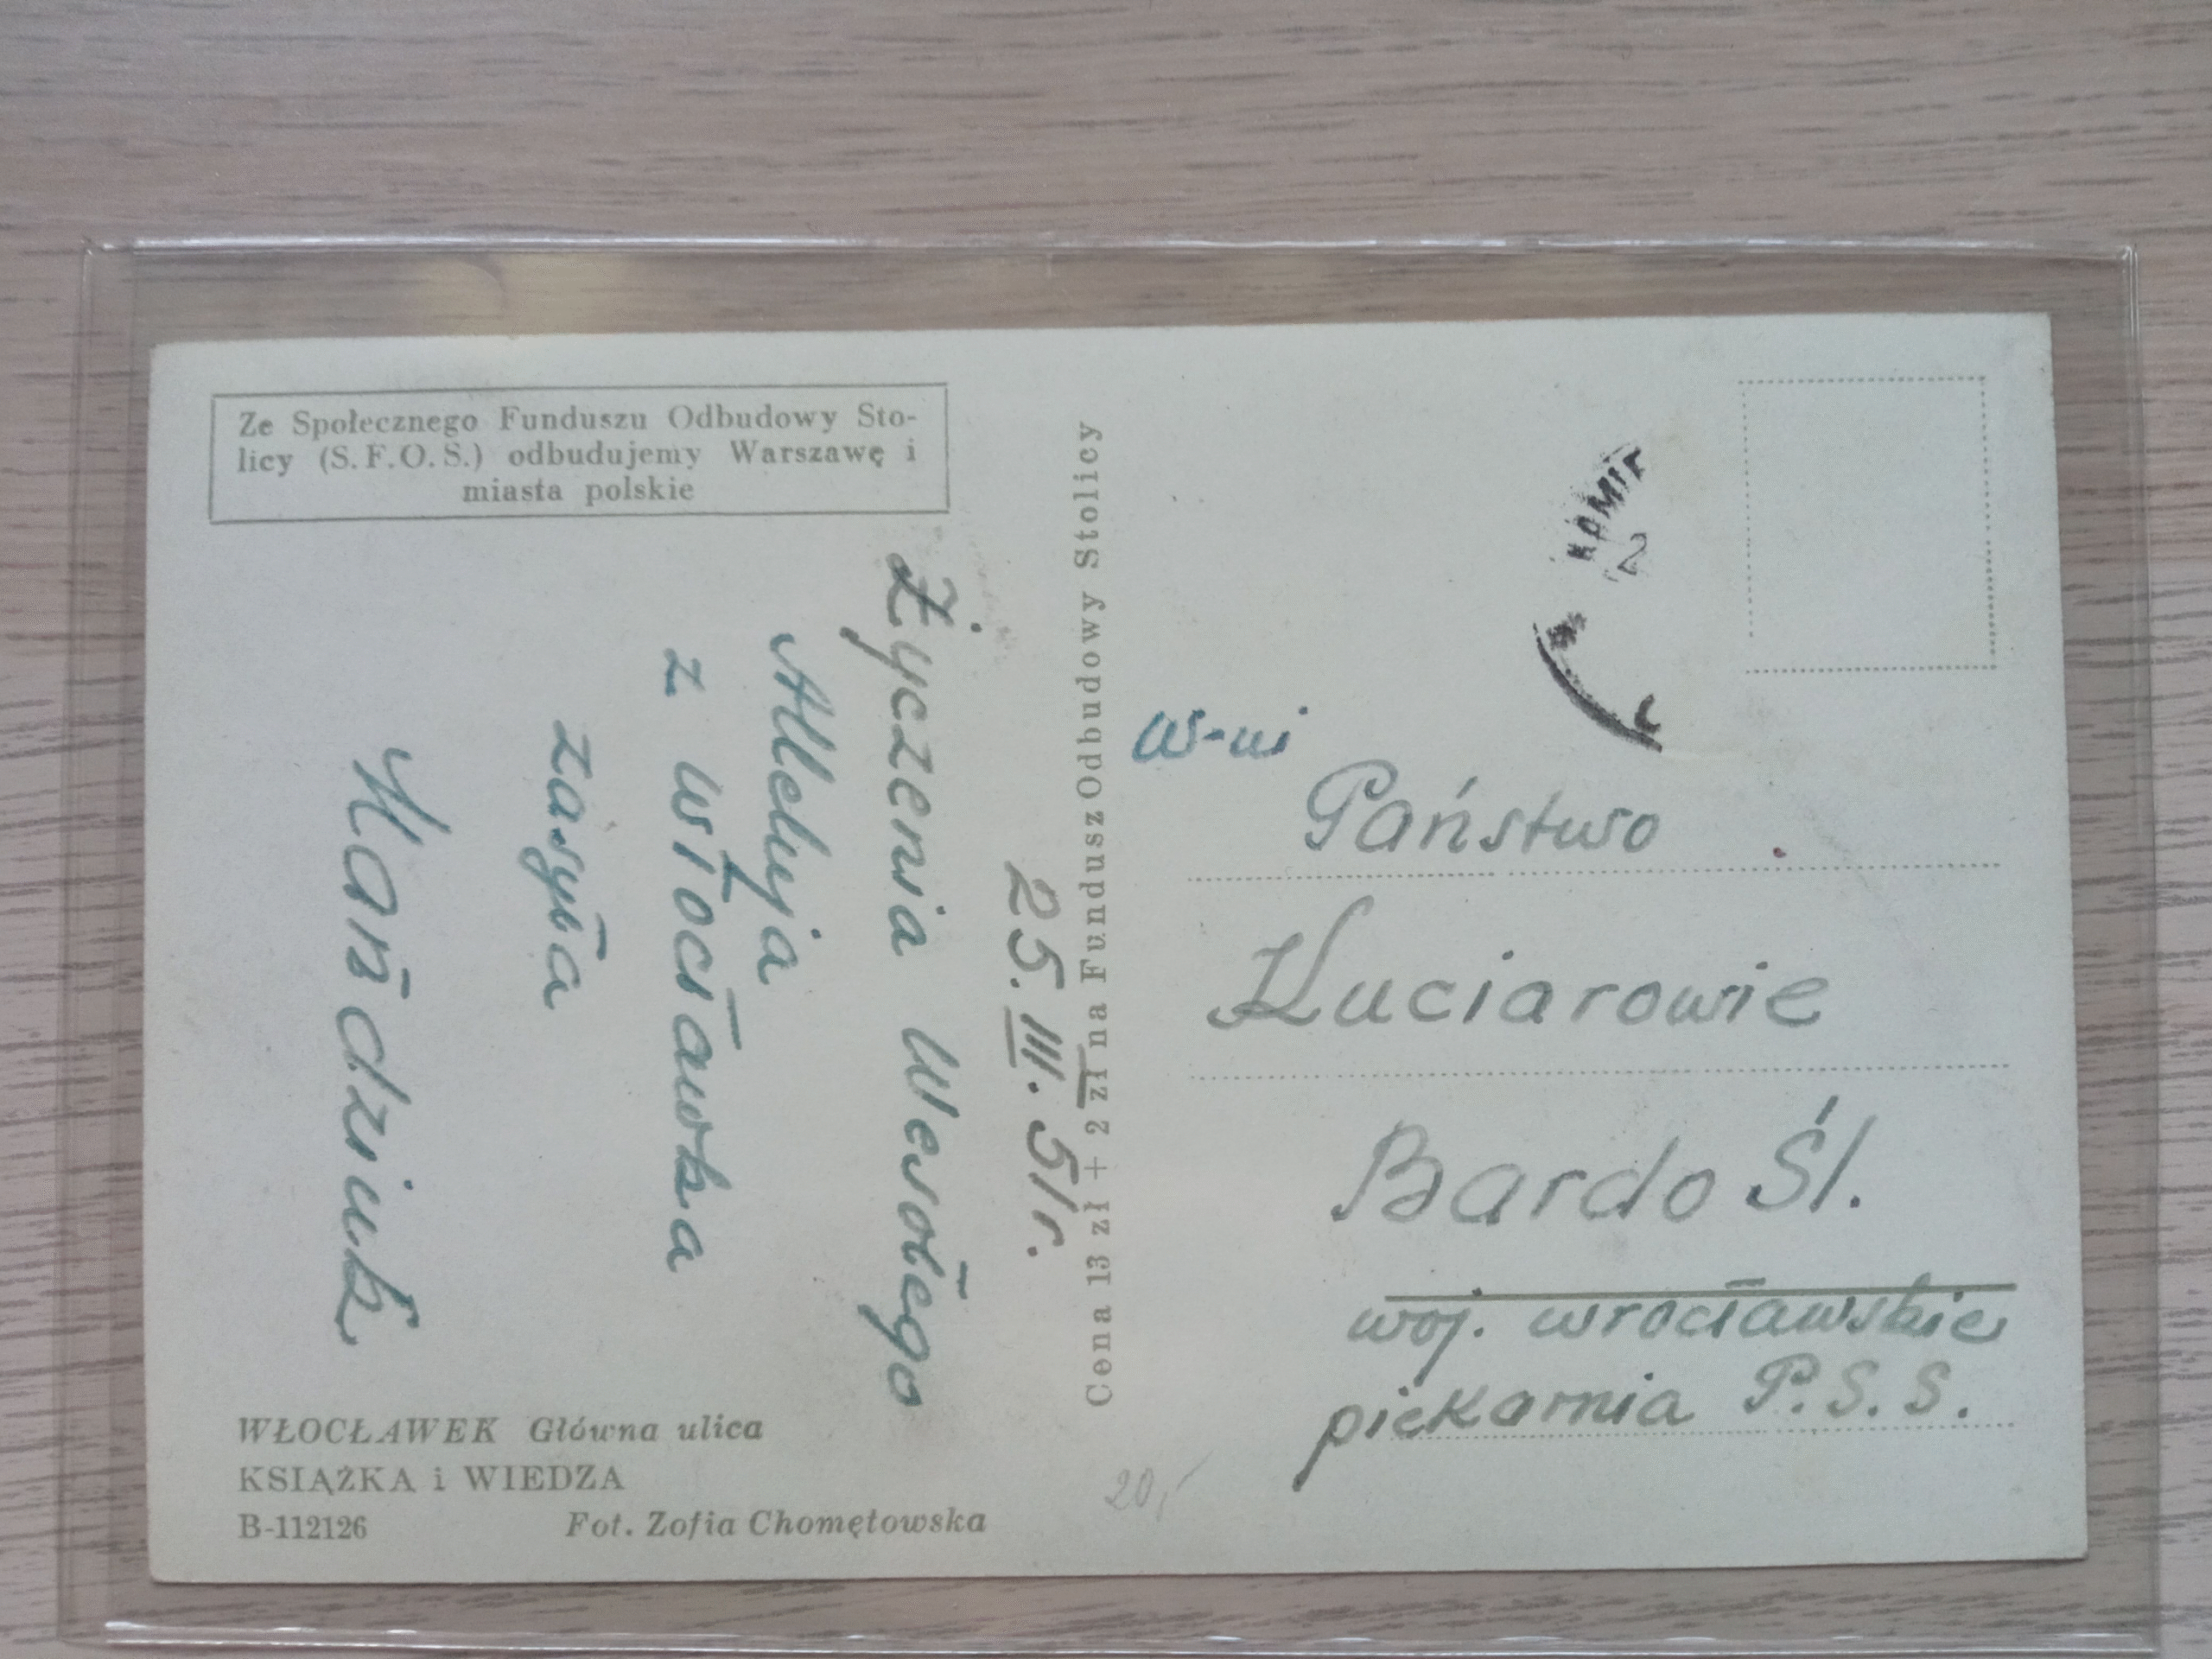 Ze Społecznego Funduszu Odbudowy Sto-
licy (S.F.O.S.) odbudujemy Warszawę i
miasta polskie
25.III.51r.
Życzenia Wesołego
Alleluja
z Włocławka
zasyła
Mańdziuk
WŁOCŁAWEK Główna ulica
KSIĄŻKA i WIEDZA
B-112126 Fot. Zofia Chomętowska
Cena 13 zł + 2 zł na Fundusz Odbudowy Stolicy
2
W-ni
Państwo
Kuciarowie
Bardo Śl.
woj. wrocławskie
piekarnia P.S.S.
20,-